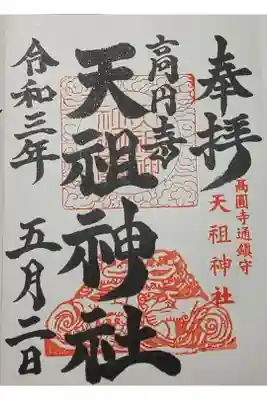 奉拝
高圓寺通鎮守
天祖神社
高円寺
天祖神社
令和三年
五月二日